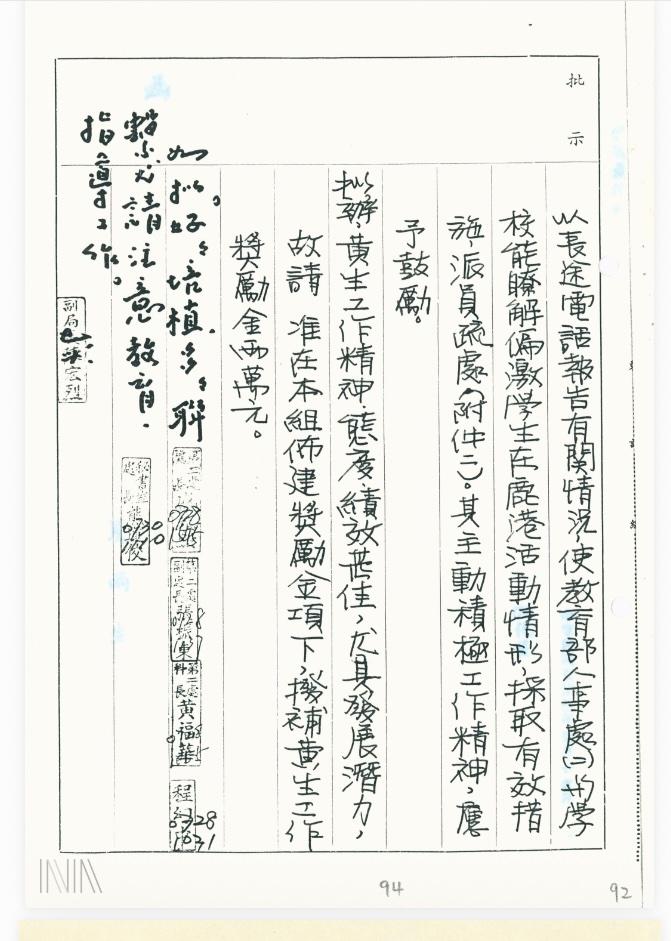 批示
以長途電話報告有関情況,使教育部人事處(二)與學
校能瞭解偏激學生在鹿港活動情形,採取有效措
施,派員疏處(附件二)。其主動積極工作精神,應
予鼓勵。
擬辦:黃生工作精神、態度、績效甚佳,尤具發展潛力,
故請 准在本組佈建獎勵金項下,撥補黃生工作
獎勵金兩萬元。
如擬。好好培植,多多聯
繫,尤請注意教育、
指導工作。
副局長
宏烈
秘書室
0730
第二處
長
0728
第二處
副處長
張振東
第二處
科長
黃福華
程
0728
1631
94
92